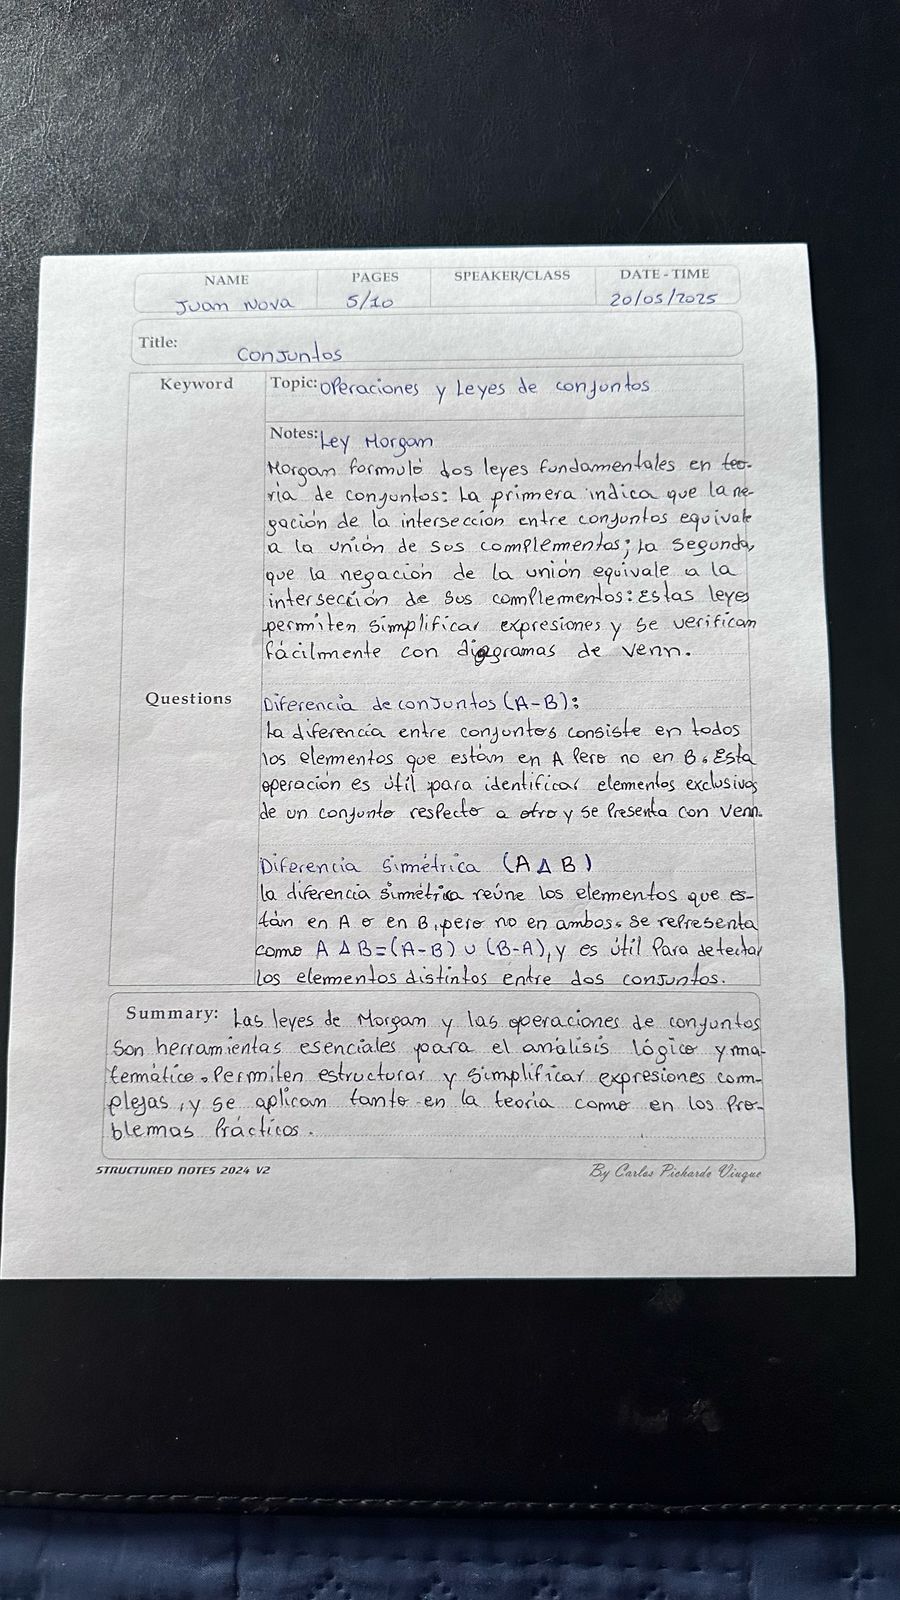 NAME PAGES SPEAKER/CLASS DATE - TIME
Juan Nova 5/10 20/05/2025
Title: Conjuntos
Keyword
Topic: Operaciones y Leyes de conjuntos
Notes: Ley Morgan
Morgan formuló dos leyes fundamentales en teo-
ría de conjuntos: La primera indica que la ne-
gación de la intersección entre conjuntos equivale
a la unión de sus complementos; La segunda,
que la negación de la unión equivale a la
intersección de sus complementos: Estas leyes
permiten simplificar expresiones y se verifican
fácilmente con diagramas de venn.
Questions
Diferencia de conjuntos (A-B):
La diferencia entre conjuntos consiste en todos
los elementos que están en A Pero no en B. Esta
operación es útil para identificar elementos exclusivos
de un conjunto respecto a otro y se Presenta con Venn.
Diferencia Simétrica (A Δ B)
la diferencia simétrica reúne los elementos que es-
tán en A o en B, pero no en ambos. se representa
como A Δ B = (A-B) ∪ (B-A), y es útil Para detectar
los elementos distintos entre dos conjuntos.
Summary: Las leyes de Morgan y las operaciones de conjuntos
Son herramientas esenciales para el análisis lógico y ma-
temático. Permiten estructurar y simplificar expresiones com-
plejas, y se aplican tanto en la teoría como en los Pro-
blemas Prácticos.
STRUCTURED NOTES 2024 V2 By Carlos Pichardo Viuque